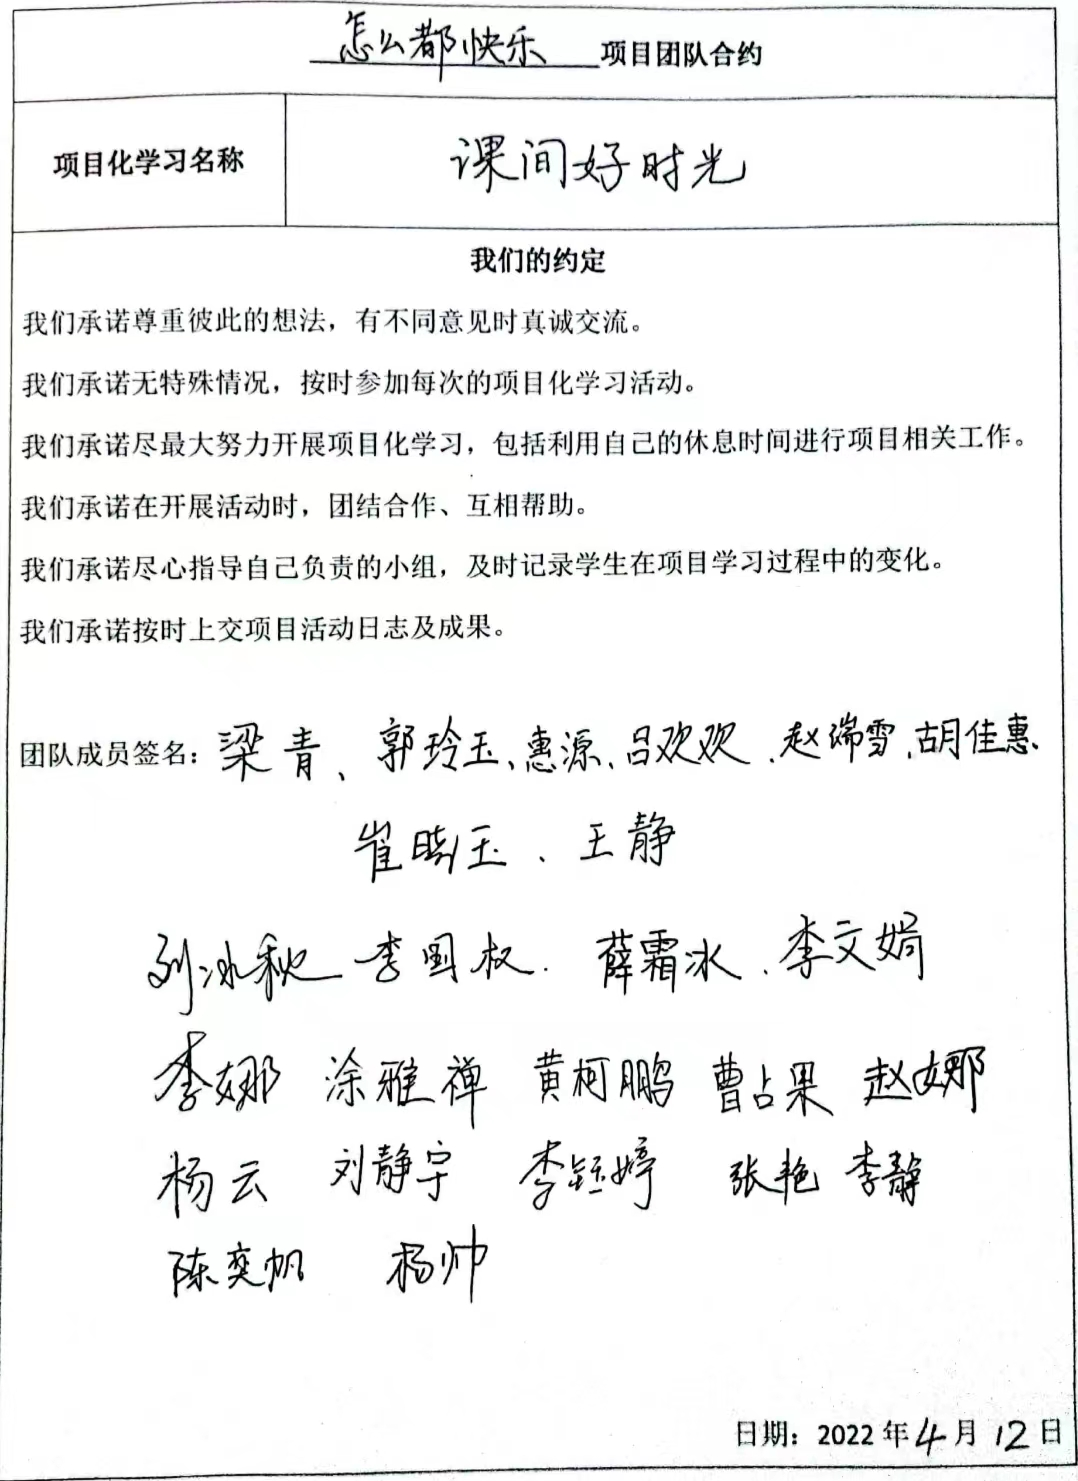 怎么都快乐项目团队合约
项目化学习名称 课间好时光
我们的约定
我们承诺尊重彼此的想法，有不同意见时真诚交流。
我们承诺无特殊情况，按时参加每次的项目化学习活动。
我们承诺尽最大努力开展项目化学习，包括利用自己的休息时间进行项目相关工作。
我们承诺在开展活动时，团结合作、互相帮助。
我们承诺尽心指导自己负责的小组，及时记录学生在项目学习过程中的变化。
我们承诺按时上交项目活动日志及成果。
团队成员签名：梁青、郭玲玉、惠源、吕欢欢、赵瑞雪、胡佳惠、
崔晓玉、王静
刘冰秋 李国权、薛霜冰、李文娟
李娜 涂雅禅 黄柯鹏 曹占果 赵娜
杨云 刘静宇 李钰婷 张艳 李静
陈奕帆 杨帅
日期：2022年4月12日